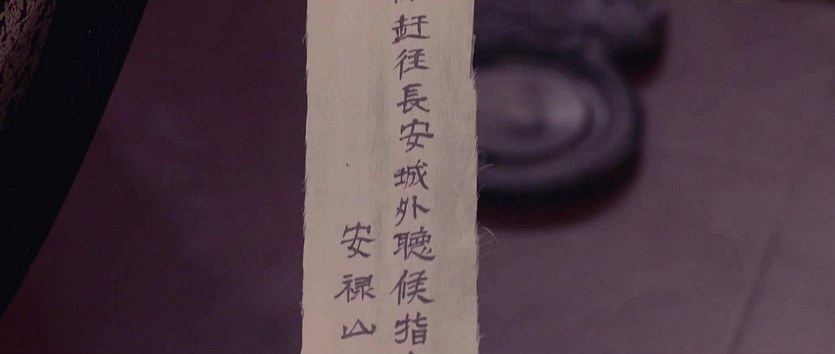 赶往長安城外聽候指
安禄山